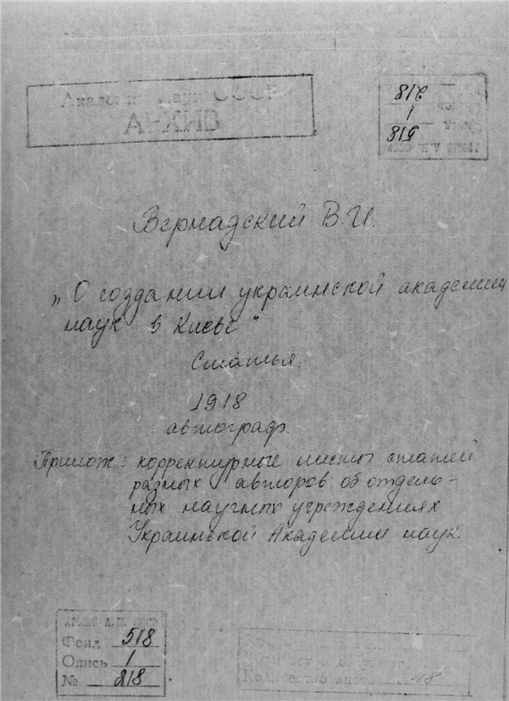 Академия наук СССР
АРХИВ
Вернадский В.И.
„О создании украинской академии
наук в Киеве"
Статья.
1918
автограф.
Прилож: корректурные листы статей
разных авторов об отдель-
ных научных учреждениях
Украинской Академии наук.
АРХИВ А. Н. СССР
Фонд 518
Опись 1
№ 218